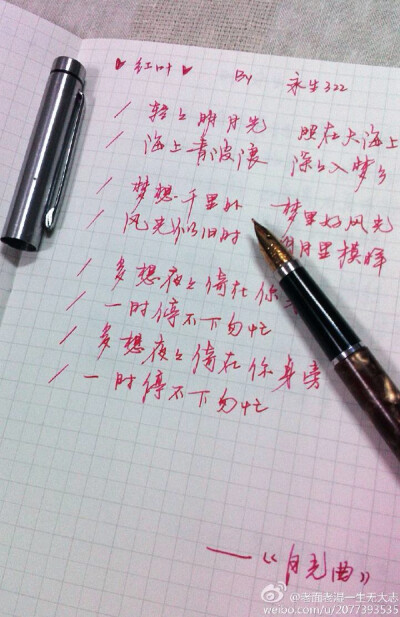 ♥ 红叶 ♥ By 永生322
/ 轻々明月光 照在大海上
/ 海上青波浪 深々入梦乡
/ 梦想千里外 梦里好风光
/ 风光仍旧时 月里模样
/ 多想夜々倚在你
/ 一时停不下匆忙
/ 多想夜々倚在你身旁
/ 一时停不下匆忙
——《月光曲》
@老面老湿一生无大志
weibo.com/u/2077393535